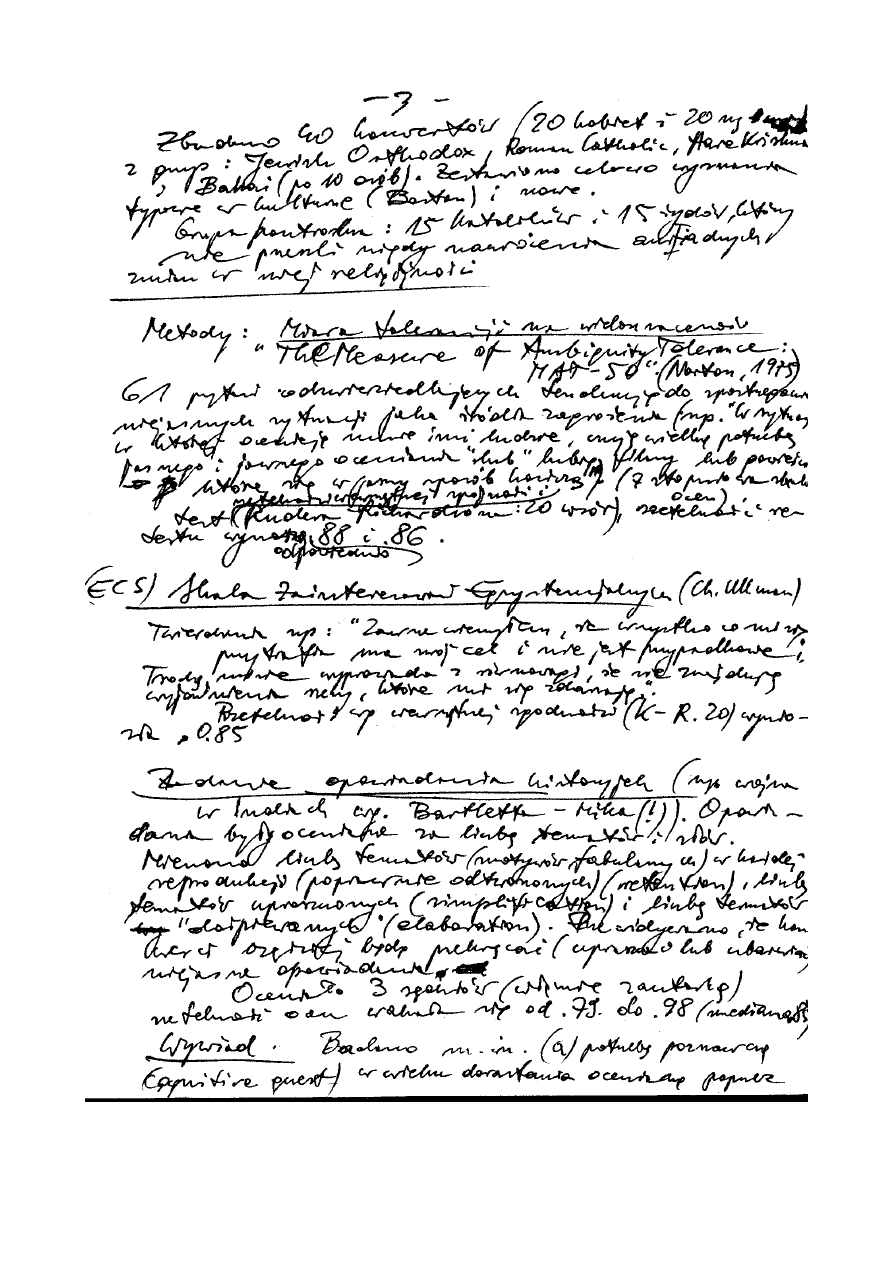 - 3 -
Zbadano 40 konwertów (20 kobiet i 20
z grup: Jewish Orthodox, Roman Catholic, Hare Krishna
, Bahai (po 10 osób). Zestawiono celowo wyznania
typowe w kulturze (Boston) i nowe.
Grupa kontrolna: 15 katolików i 15 żydów, którzy
nie przeszli nigdy nawrócenia ani żadnych
zmian w swej religijności
Metody: Miara tolerancji na wieloznaczność
"The Measure of Ambiguity Tolerance:
MAT-50" (Norton, 1975)
61 pytań odzwierciedlających tendencję do spostrzegania
niejasnych sytuacji jako źródła zagrożenia (np. "W sytuacji
w której oceniają mnie inni ludzie, czuję wielką potrzebę
jasnego i jawnego oceniania" lub "lubię filmy lub powieści
które się w jasny sposób kończą") (7 stopniowa skala
rzetelność wewnętrznej spójności ocen)
test (Kudera Richardsona: 20 wzór), rzetelność re-
testu wynoszą .88 i .86.
odpowiednio
(ECS) Skala Zainteresowań Egzystencjalnych (Ch. Ullman)
Twierdzenia np: "Zawsze wierzyłem, że wszystko co mi się
przytrafia ma swój cel i nie jest przypadkowe i
mnie wyprowadza z równowagi, że nie znajduję
wyjaśnienia rzeczy, które mi się zdarzają".
Rzetelność wg wewnętrznej zgodności (K-R. 20) wyno-
siła , 0.85
Zadanie opowiadania historyjek (np wojna
w Indiach wg. Bartletta - (!)). Opowia-
dania były oceniane za liczbę tematów i
Mierzono liczbę tematów (motywów fabularnych) w każdej
reprodukcji (poprawnie odtworzonych) (retention), liczbę
tematów uproszczonych (simplification) i liczbę tematów
"dośpiewanych" (elaboration). Przewidywano, że kon-
werci częściej będą przekręcać (upraszczać lub ubarwiać)
niejasne opowiadania.
Oceniało 3 sędziów (włącznie z autorką)
rzetelność ocen wahała się od .79. do .98 (mediana 85)
Wywiad. Badano m.in. (a) potrzebę poznawczą
(Cognitive quest) w wieku dorastania ocenianą poprzez